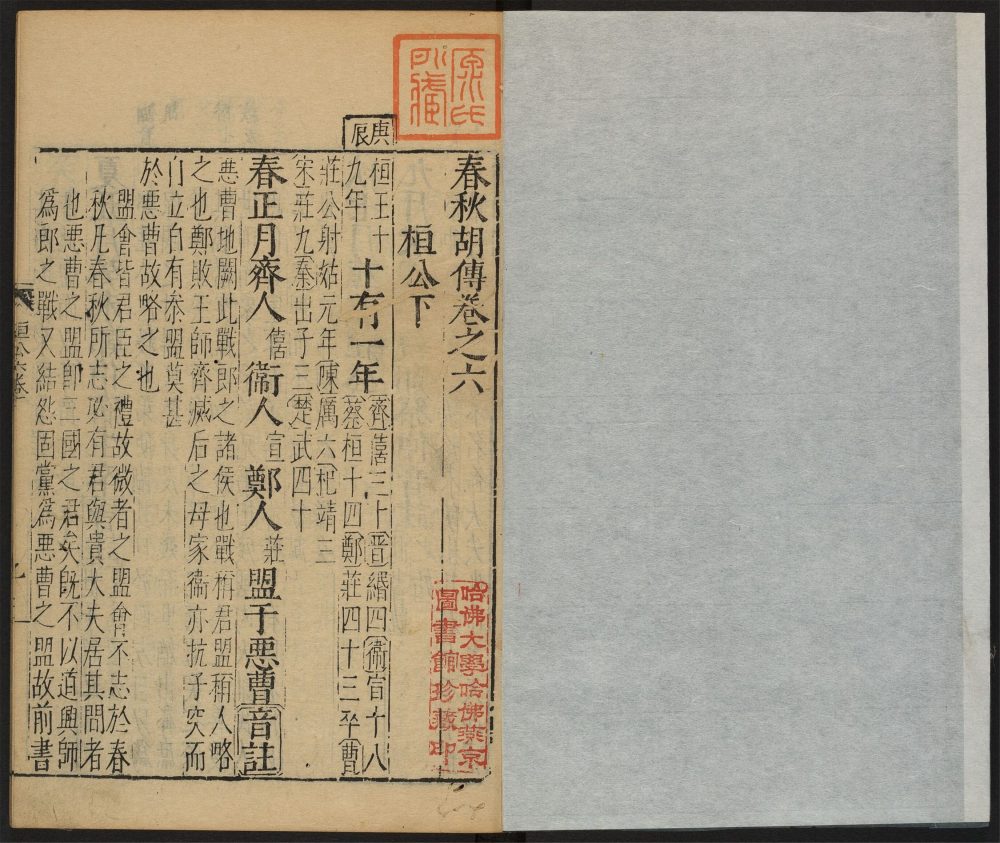 春秋胡傳卷之六
桓公下
庚辰
桓王十九年
十有一年
齊僖三十晉緡四衞宣十八
蔡桓十四鄭莊四十三卒曹
莊公射姑元年陳厲六杞靖三
宋莊九秦出子三楚武四十
春正月齊人僖衞人宣鄭人莊盟于惡曹音註
惡曹地闕此戰郎之諸侯也戰稱君盟稱人略
之也鄭敗王師齊滅后之母家衞亦抗子突而
自立自有參盟莫甚
於惡曹故略之也
盟會皆君臣之禮故微者之盟會不志於春
秋凡春秋所志必有君與貴大夫居其間者
也惡曹之盟卽三國之君矣旣不以道興師
爲郎之戰又結怨固黨爲惡曹之盟故前書
桓公六卷
哈佛大學哈佛燕京
圖書館珍藏印